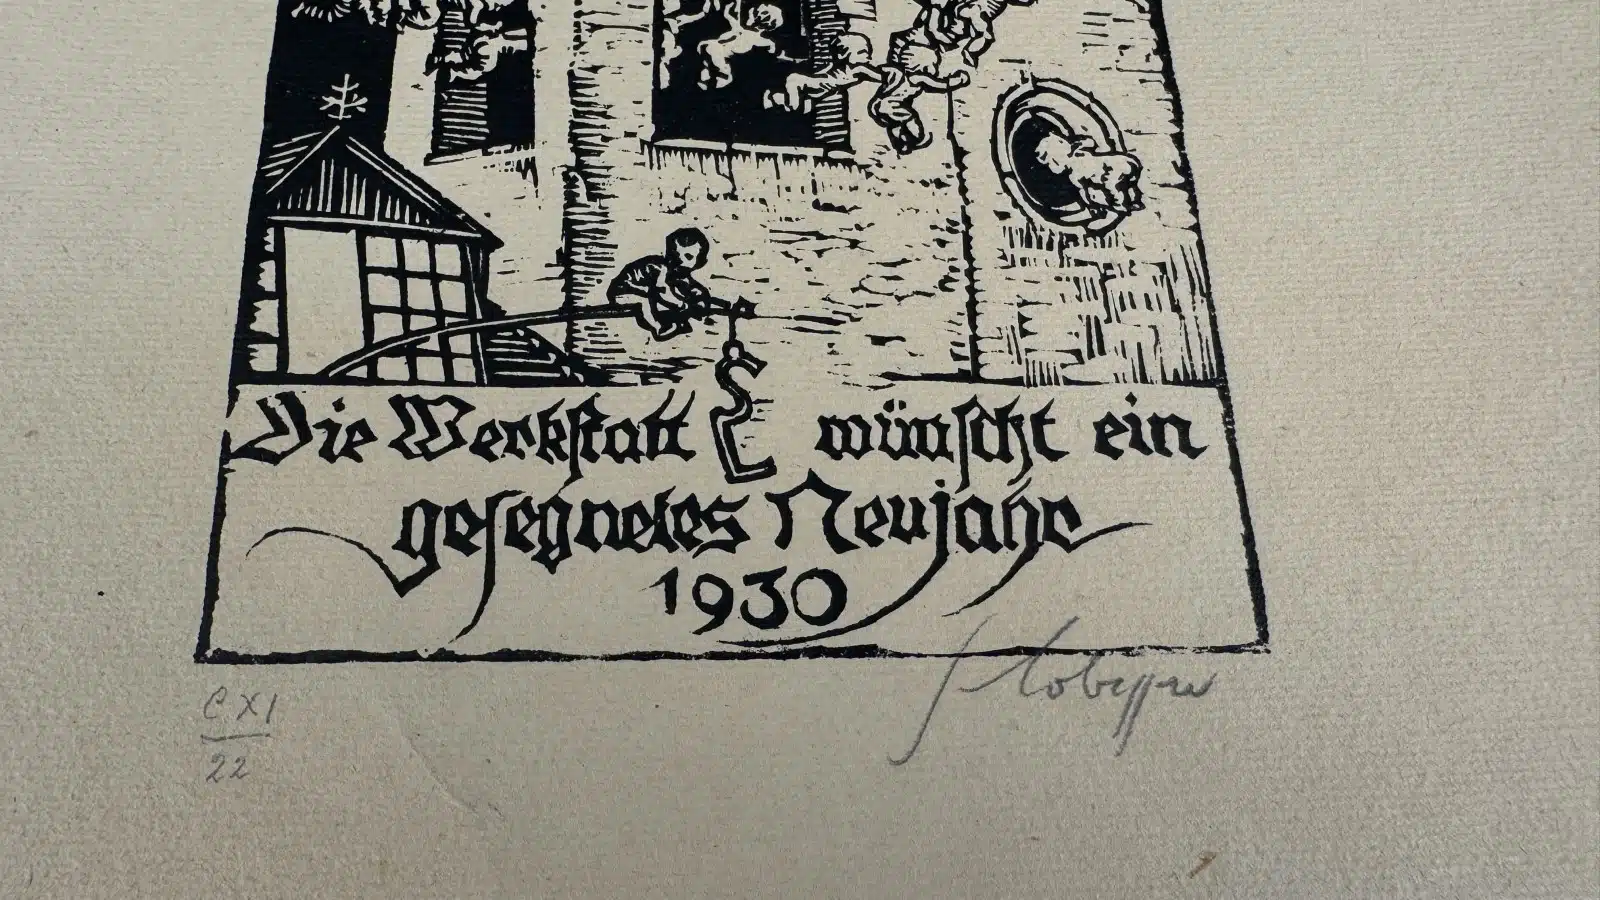 Die Werkstatt SL wünscht ein
gesegnetes Neujahr
1930
C XI
22